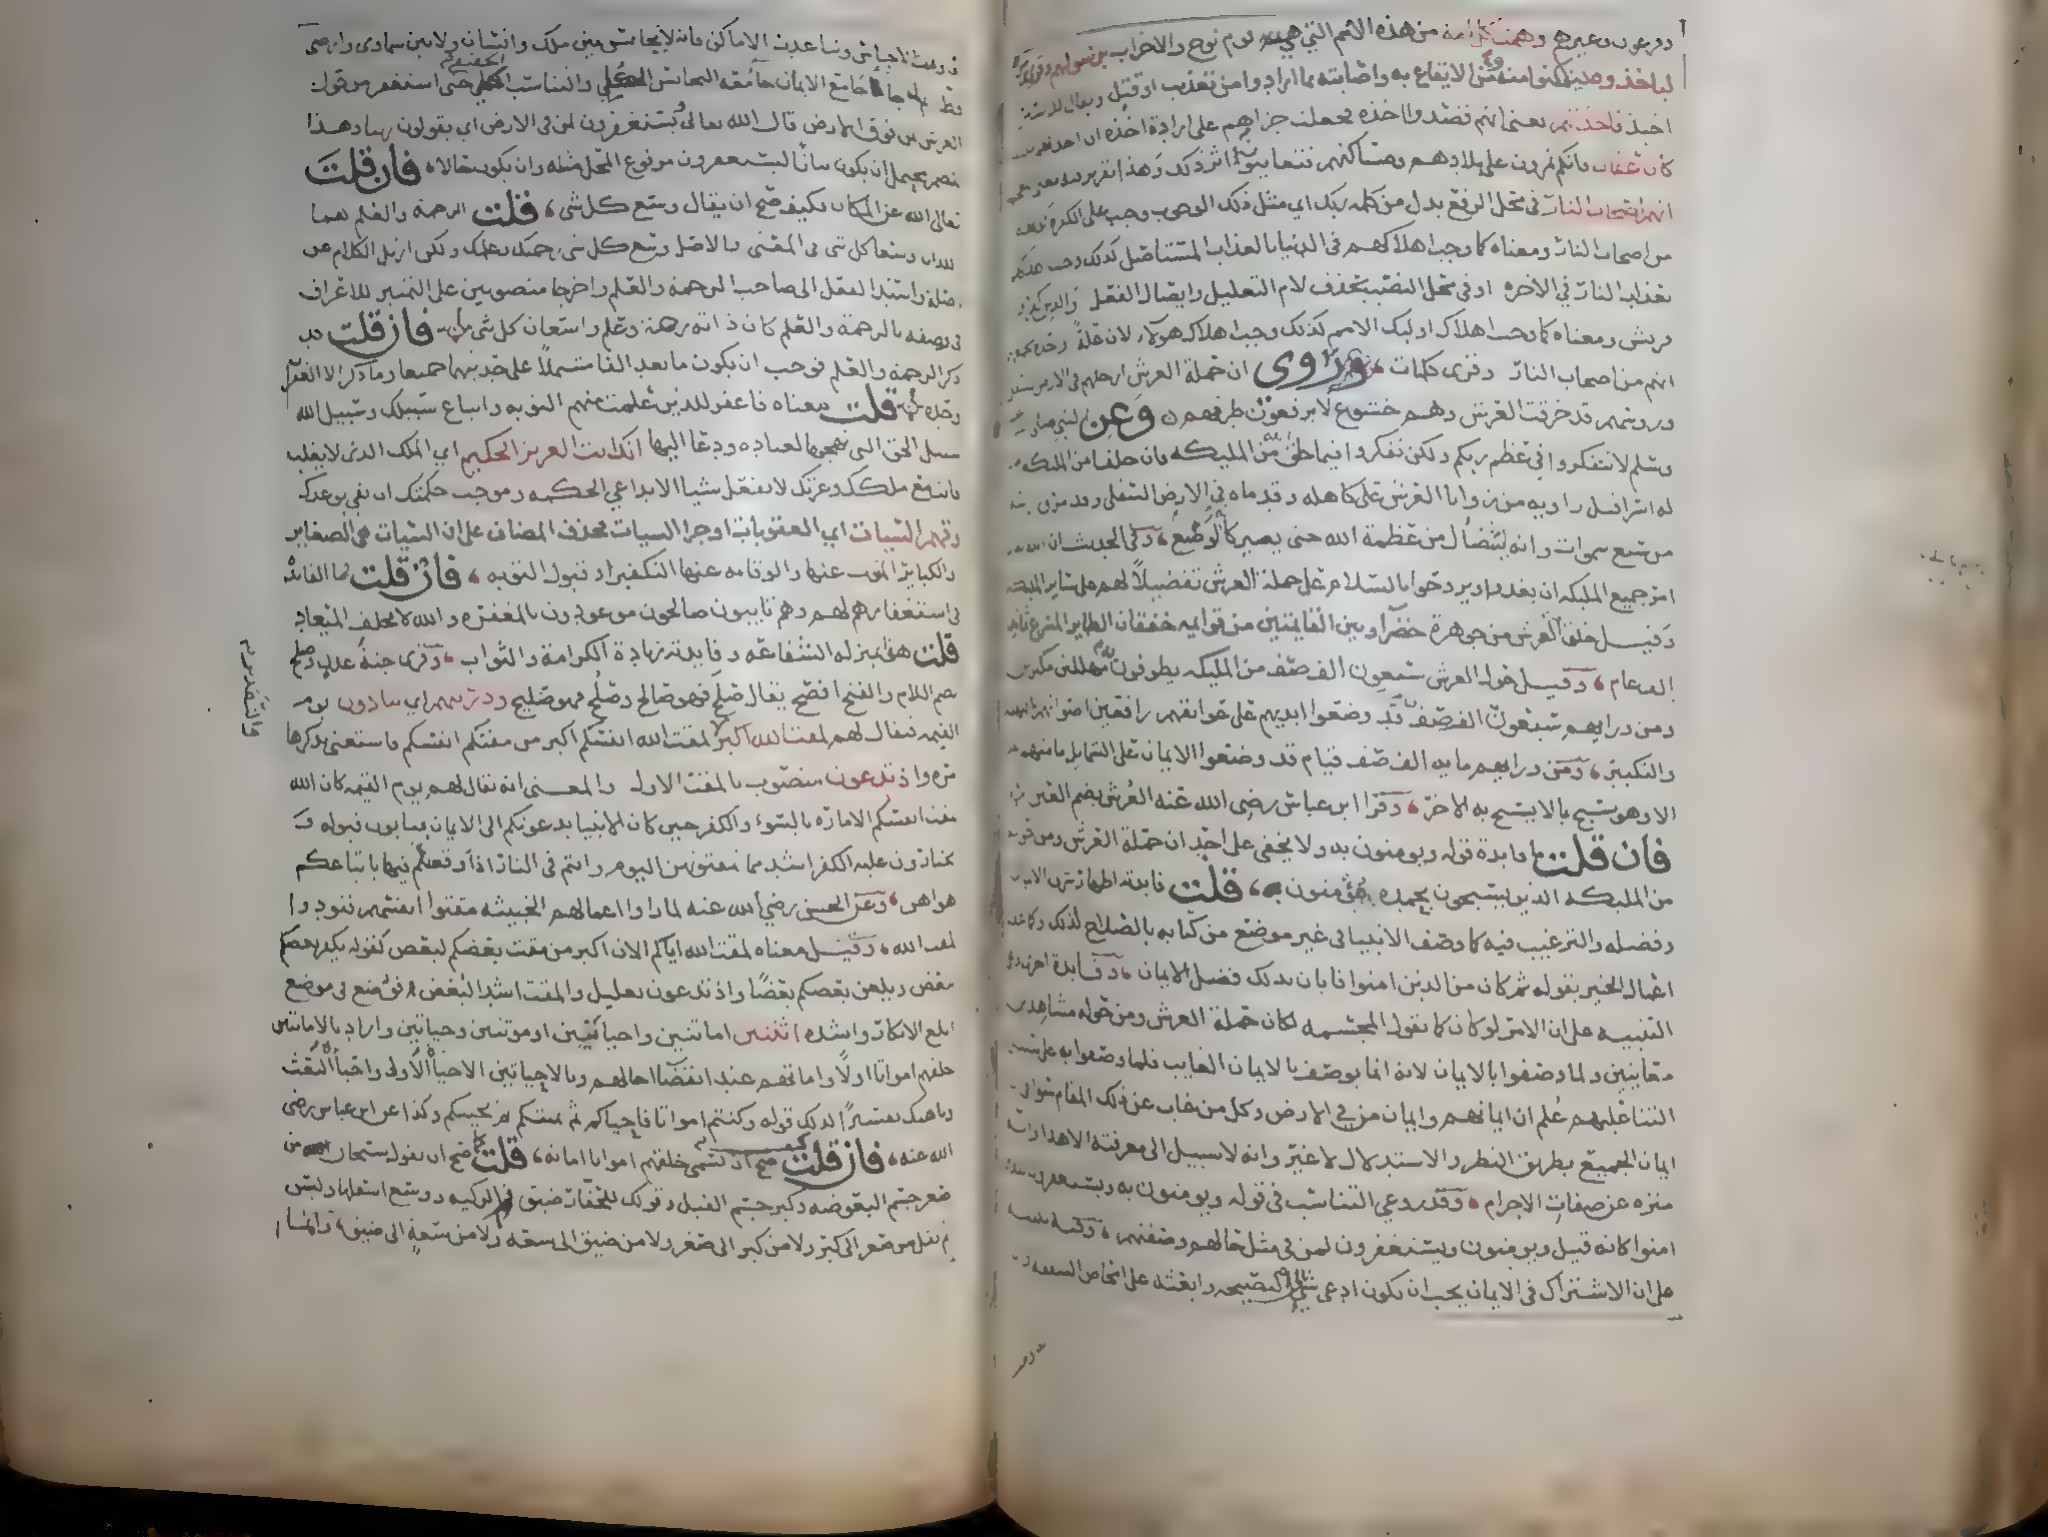 وفرعون وغيرهم وهمت كل امة من هذه الامم التي هي قوم نوح والاحزاب برسولهم وقرى برسولها
لياخذوه ليتمكنوا منه ومن الايقاع به واصابته بما ارادوا من تعذيب او قتل ويقال للاسير
اخيذ فاخذتهم يعنى انهم قصدوا اخذه فجعلت جزاهم على ارادة اخذه ان اخذتهم فكيف
كان عقاب فانكم تمرون على بلادهم ومساكنهم فتعاينون اثر ذلك وهذا تقرير فيه معنى التعجيب
انهم اصحاب النار في محل الرفع بدل من كلمة ربك اي مثل ذلك الوجوب وجب على الكفرة كونهم
من اصحاب النار ومعناه كما وجب اهلاكهم في الدنيا بالعذاب المستاصل كذلك وجب اهلاكهم
بعذاب النار في الاخرة او في محل النصب بحذف لام التعليل وايصال الفعل والذين كفروا
قريش ومعناه كما وجب اهلاك اوليك الامم كذلك وجب اهلاك هولاء لان علة واحدة تجمعهم
انهم من اصحاب النار وقرى كلمات وروي ان حملة العرش ارجلهم في الارض السفلى
وروسهم قد خرقت العرش وهم خشوع لا يرفعون طرفهم وعن النبي صلى الله عليه
وسلم لا تتفكروا في عظم ربكم ولكن تفكروا فيما خلق الله من المليكه فان خلقا من المليكه يقال
له اسرافيل زاويه من زوايا العرش على كاهله وقدماه في الارض السفلى وقد مرق راسه
من سبع سموات وانه ليتضأل من عظمة الله حتى يصير كانه الوصع وفي الحديث ان الله تعالى
امر جميع المليكه ان يغدوا ويروحوا بالسلام على حملة العرش تفضيلا لهم على سائر المليكه
وقيل خلق الله العرش من جوهرة خضرآ وبين القايمتين من قوايمه خفقان الطاير المسرع ثمانين
الف عام وقيل حول العرش سبعون الف صف من المليكه يطوفون به مهللين مكبرين
ومن ورايهم سبعون الف صف قيام قد وضعوا ايديهم على عواتقهم رافعين اصواتهم بالتهليل
والتكبير ومن ورايهم مايه الف صف قيام قد وضعوا الايمان على الشمايل ما منهم احد
الا وهو يسبح بما لا يسبح به الاخر وقرا ابن عباس رضي الله عنه العرش بضم العين
فان قلت ما فايدة قوله ويومنون به ولا يخفى على احد ان حملة العرش ومن حوله
من المليكه الذين يسبحون بحمده مومنون به قلت فايدته اظهار شرف الايمان
وفضله والترغيب فيه كما وصف الانبيا في غير موضع من كتابه بالصلاح لذلك وكما عقب
اعمال الخير بقوله ثم كان من الذين امنوا فابان بذلك فضل الايمان وفايدة اخرى وهي
التنبيه على ان الامر لو كان كما تقول المجسمه لكان حملة العرش ومن حوله مشاهدين
معاينين ولما وصفوا بالايمان لانه انما يوصف بالايمان الغايب فلما وصفوا به على سبيل
الثنا عليهم علم ان ايمانهم وايمان من في الارض وكل من غاب عن ذلك المقام سوا في
ايمان الجميع بطريق النظر والاستدلال لا غير وانه لا سبيل الى معرفته الا هذا وانه
منزه عن صفات الاجرام وقد روعي التناسب في قوله ويومنون به ويستغفرون للذين
امنوا كانه قيل ويومنون ويستغفرون لمن في مثل حالهم وصفتهم وفيه تنبيه
على ان الاشتراك في الايمان يجب ان يكون ادعى شي الى النصيحه وابعثه على امحاض الشفقه وان
تفاوتت الاجناس وتباعدت الاماكن فانه لا تجانس بين ملك وانسان ولا بين سماوى وارضي
قط ثم لما جا جامع الايمان جا معه التجانس الكلي والتناسب الحقيقي حتى استغفر من حول
العرش لمن فوق الارض قال الله تعالى ويستغفرون لمن في الارض اي يقولون ربنا وهذا
المضمر يحتمل ان يكون بيانا ليستغفرون مرفوع المحل مثله وان يكون حالا فان قلت
تعالى الله عن المكان فكيف صح ان يقال وسع كل شى قلت الرحمة والعلم هما
اللذان وسعا كل شى في المعنى والاصل وسع كل شى رحمتك وعلمك ولكن ازيل الكلام عن
اصله واسند الفعل الى صاحب الرحمة والعلم واخرجا منصوبين على التمييز للاغراق
في وصفه بالرحمة والعلم كان ذاته رحمة وعلم واسعان كل شى فان قلت قد
ذكر الرحمة والعلم فوجب ان يكون ما بعد الفا مشتملا على حديثهما جميعا وما ذكر الا الغفران
وحده قلت معناه فاغفر للذين علمت منهم التوبه واتباع سبيلك وسبيل الله
سبيل الحق التي نهجها لعباده ودعا اليها انك انت العزيز الحكيم اي الملك الذى لا يغلب
وانت مع ملكك وعزتك لا تفعل شيا الا بداعي الحكمه وموجب حكمتك ان تفي بوعدك
وقهم السيات اي العقوبات او جزا السيات فحذف المضاف على ان السيات هي الصغاير
والكباير المتوب عنها والوقايه عنها التكفير او قبول التوبه فان قلت ما الفايدة
في استغفارهم لهم وهم تايبون صالحون موعودون بالمغفره والله لا يخلف الميعاد
قلت هذا بمنزلة الشفاعه وفايدته زيادة الكرامة والثواب وقرى جنة عدن وصلح
بضم اللام والفتح افصح يقال صلح فهو صالح وصلح فهو صليح وذريتهم اي ينادون يوم
القيمه فيقال لهم لمقت الله اكبر لمقت الله انفسكم اكبر من مقتكم انفسكم فاستغنى بذكرها
مرة واذ تدعون منصوب بالمقت الاول والمعنى انه يقال لهم يوم القيمه كان الله
يمقت انفسكم الامارة بالسوء والكفر حين كان الانبيا يدعونكم الى الايمان فتابون قبوله و
تختارون عليه الكفر اشد مما تمقتونهن اليوم وانتم في النار اذ اوقعتكم فيها باتباعكم
هواهن وعن الحسن رضي الله عنه لما راوا اعمالهم الخبيثه مقتوا انفسهم فنودوا
لمقت الله وقيل معناه لمقت الله اياكم الان اكبر من مقت بعضكم لبعض كقوله يكفر بعضكم
ببعض ويلعن بعضكم بعضا واذ تدعون تعليل والمقت اشد البغض فوضع في موضع
ابلغ الانكار واشده اثنتين اماتتين واحياتين او موتتين وحياتين واراد بالاماتتين
خلقهم امواتا اولا واماتتهم عند انقضا اجالهم وبالاحياتين الاحياة الاولى واحياة البعث
وناهيك تفسيرا لذلك قوله وكنتم امواتا فاحياكم ثم يميتكم ثم يحييكم وكذا عن ابن عباس رضي
الله عنه فان قلت كيف صح ان تسمى خلقهم امواتا اماته قلت كما صح ان تقول سبحان من
صغر جسم البعوضه وكبر جسم الفيل وقولك للحفار ضيق فم الركيه ووسع اسفلها وليس
ثم نقل من صغر الى كبر ولا من كبر الى صغر ولا من ضيق الى سعه ولا من سعة الى ضيق وانما
والتقديس